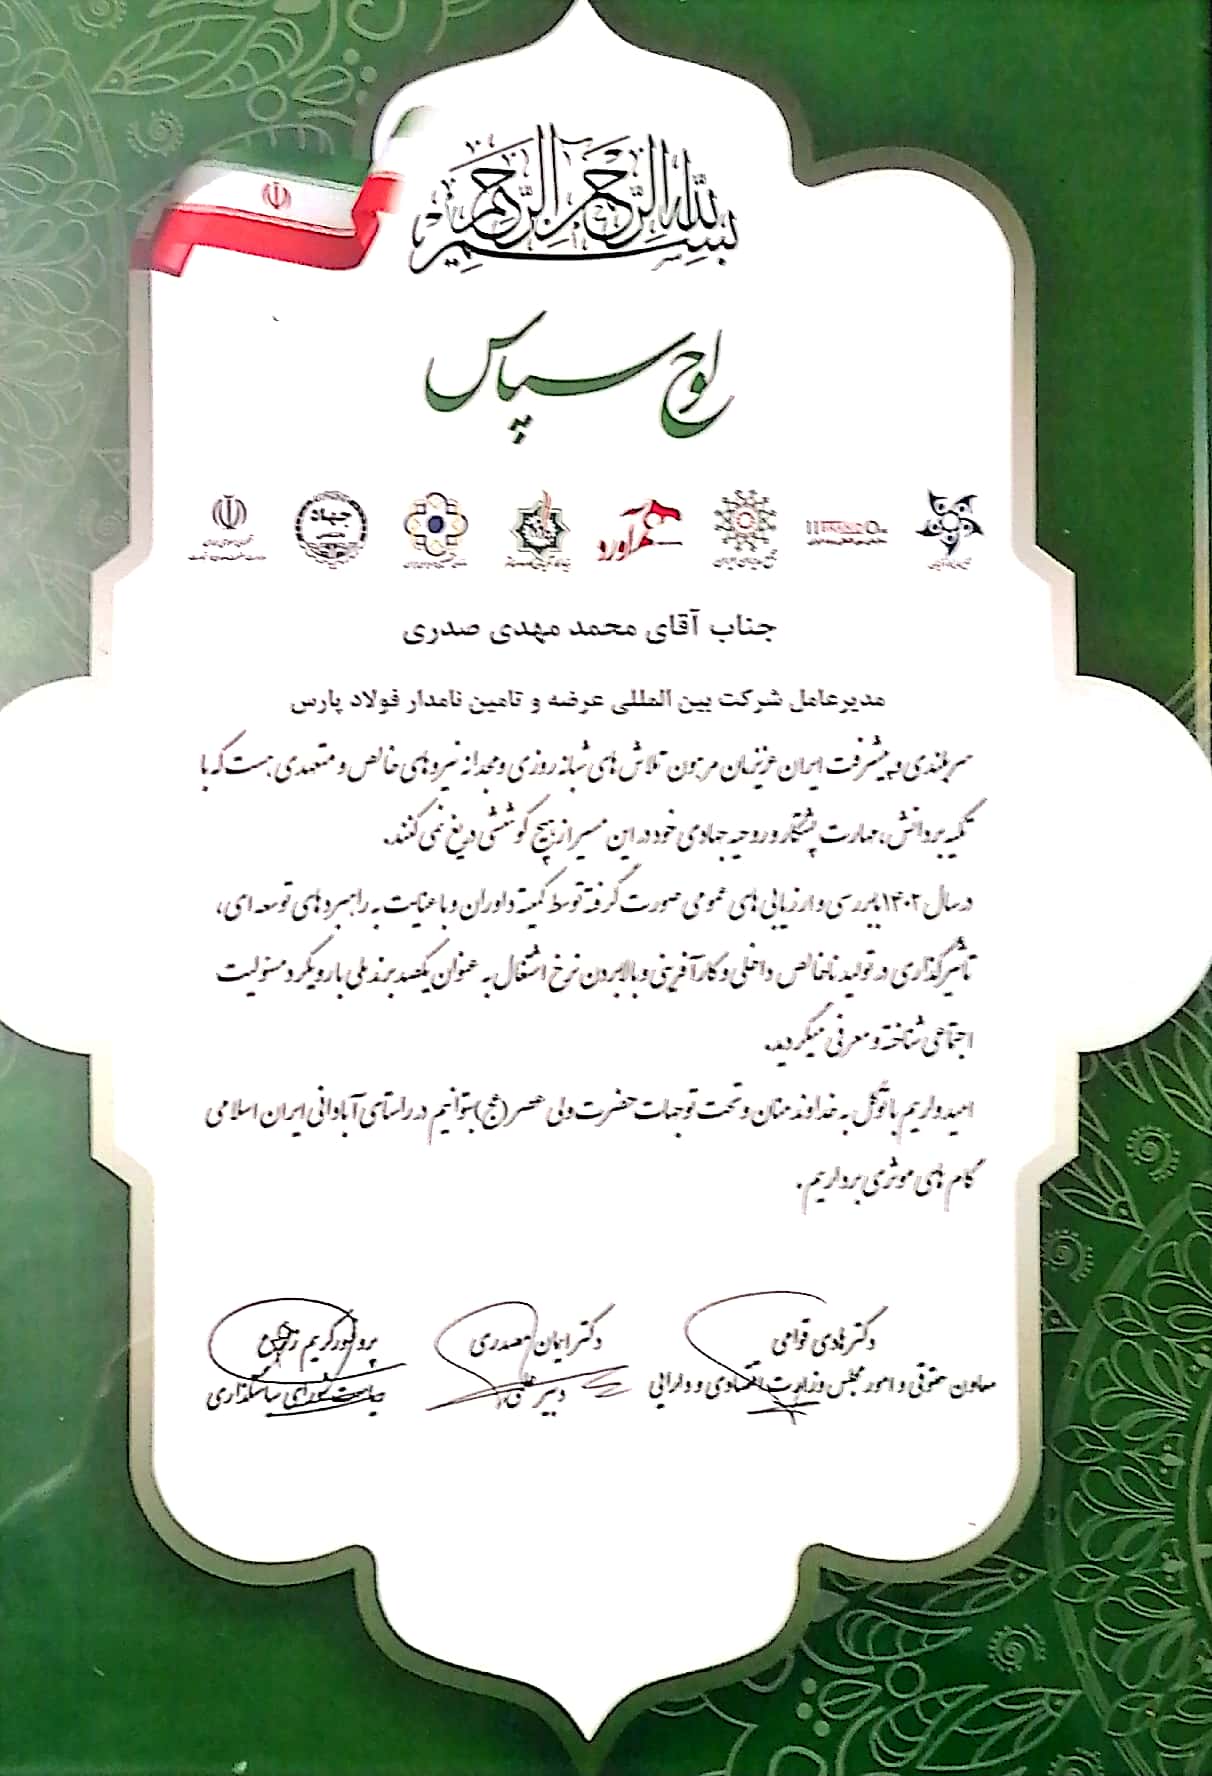 بسم الله الرحمن الرحیم
لوح سپاس
جهاد
جناب آقای محمد مهدی صدری
مدیرعامل شرکت بین المللی عرضه و تامین نامدار فولاد پارس
سربلندی و پیشرفت ایران عزیزمان مرهون تلاش های شبانه روزی و مجدانه نیروهای خالص و متعهدی هست که با
تکیه بر دانش، مهارت پشتکار و روحیه جهادی خود در این مسیر از هیچ کوششی دریغ نمی کنند.
در سال ۱۴۰۲ با بررسی و ارزیابی های عمومی صورت گرفته توسط کمیته داوران و با عنایت به راهبردهای توسعه ای،
تأثیرگذاری در تولید ناخالص داخلی و کارآفرینی و بالابردن نرخ اشتغال به عنوان یکصد برند ملی با رویکرد مسئولیت
اجتماعی شناخته و معرفی میگردید.
امیدواریم با توکل به خداوند منان و تحت توجهات حضرت ولی عصر (عج) بتوانیم در راستای آبادانی ایران اسلامی
گام های موثری برداریم.
دکتر هادی قوامی
معاون حقوقی و امور مجلس وزارت اقتصادی و دارایی
دکتر ایمان مصدری
دبیر علمی
پروفسور کریم
شورای سیاستگذاری